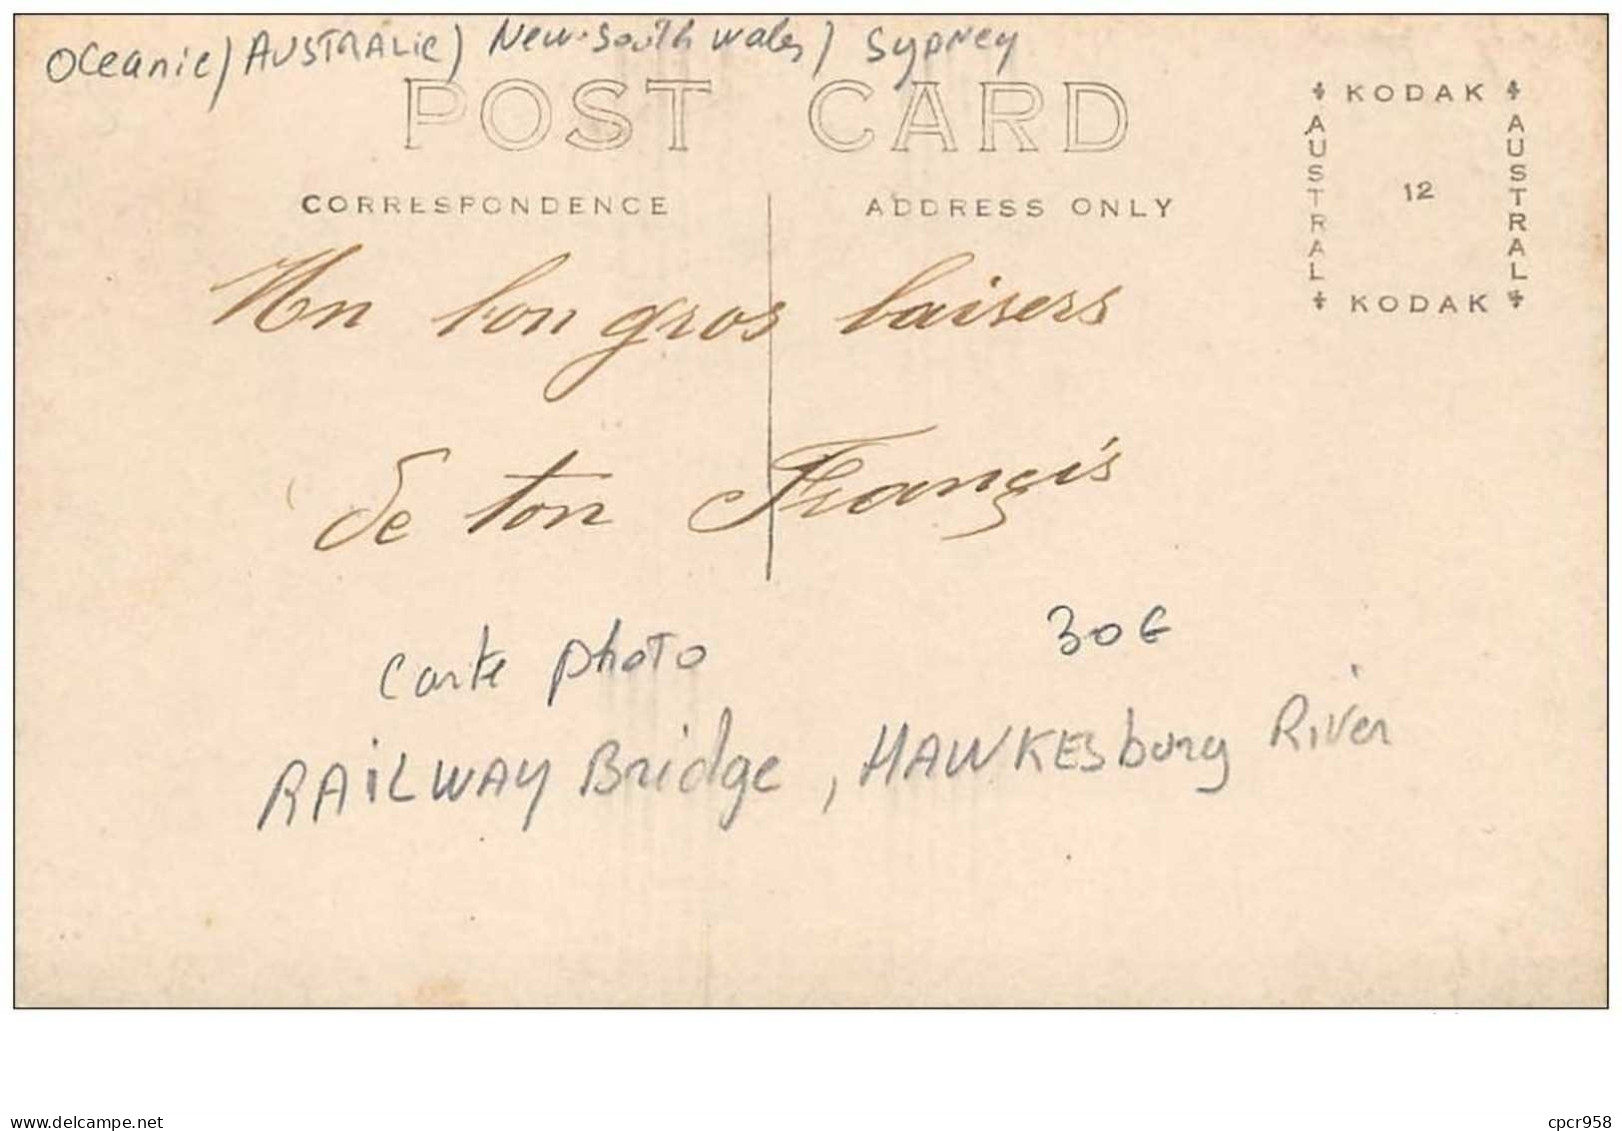 Oceanie / AUSTRALIE / New South Wales / Sydney
POST CARD
KODAK
AUSTRAL
12
AUSTRAL
KODAK
CORRESPONDENCE
ADDRESS ONLY
Un bon gros baisers
de ton Françis
carte photo
30€
RAILWAY Bridge, HAWKESburg River
www.delcampe.net
cpcr958